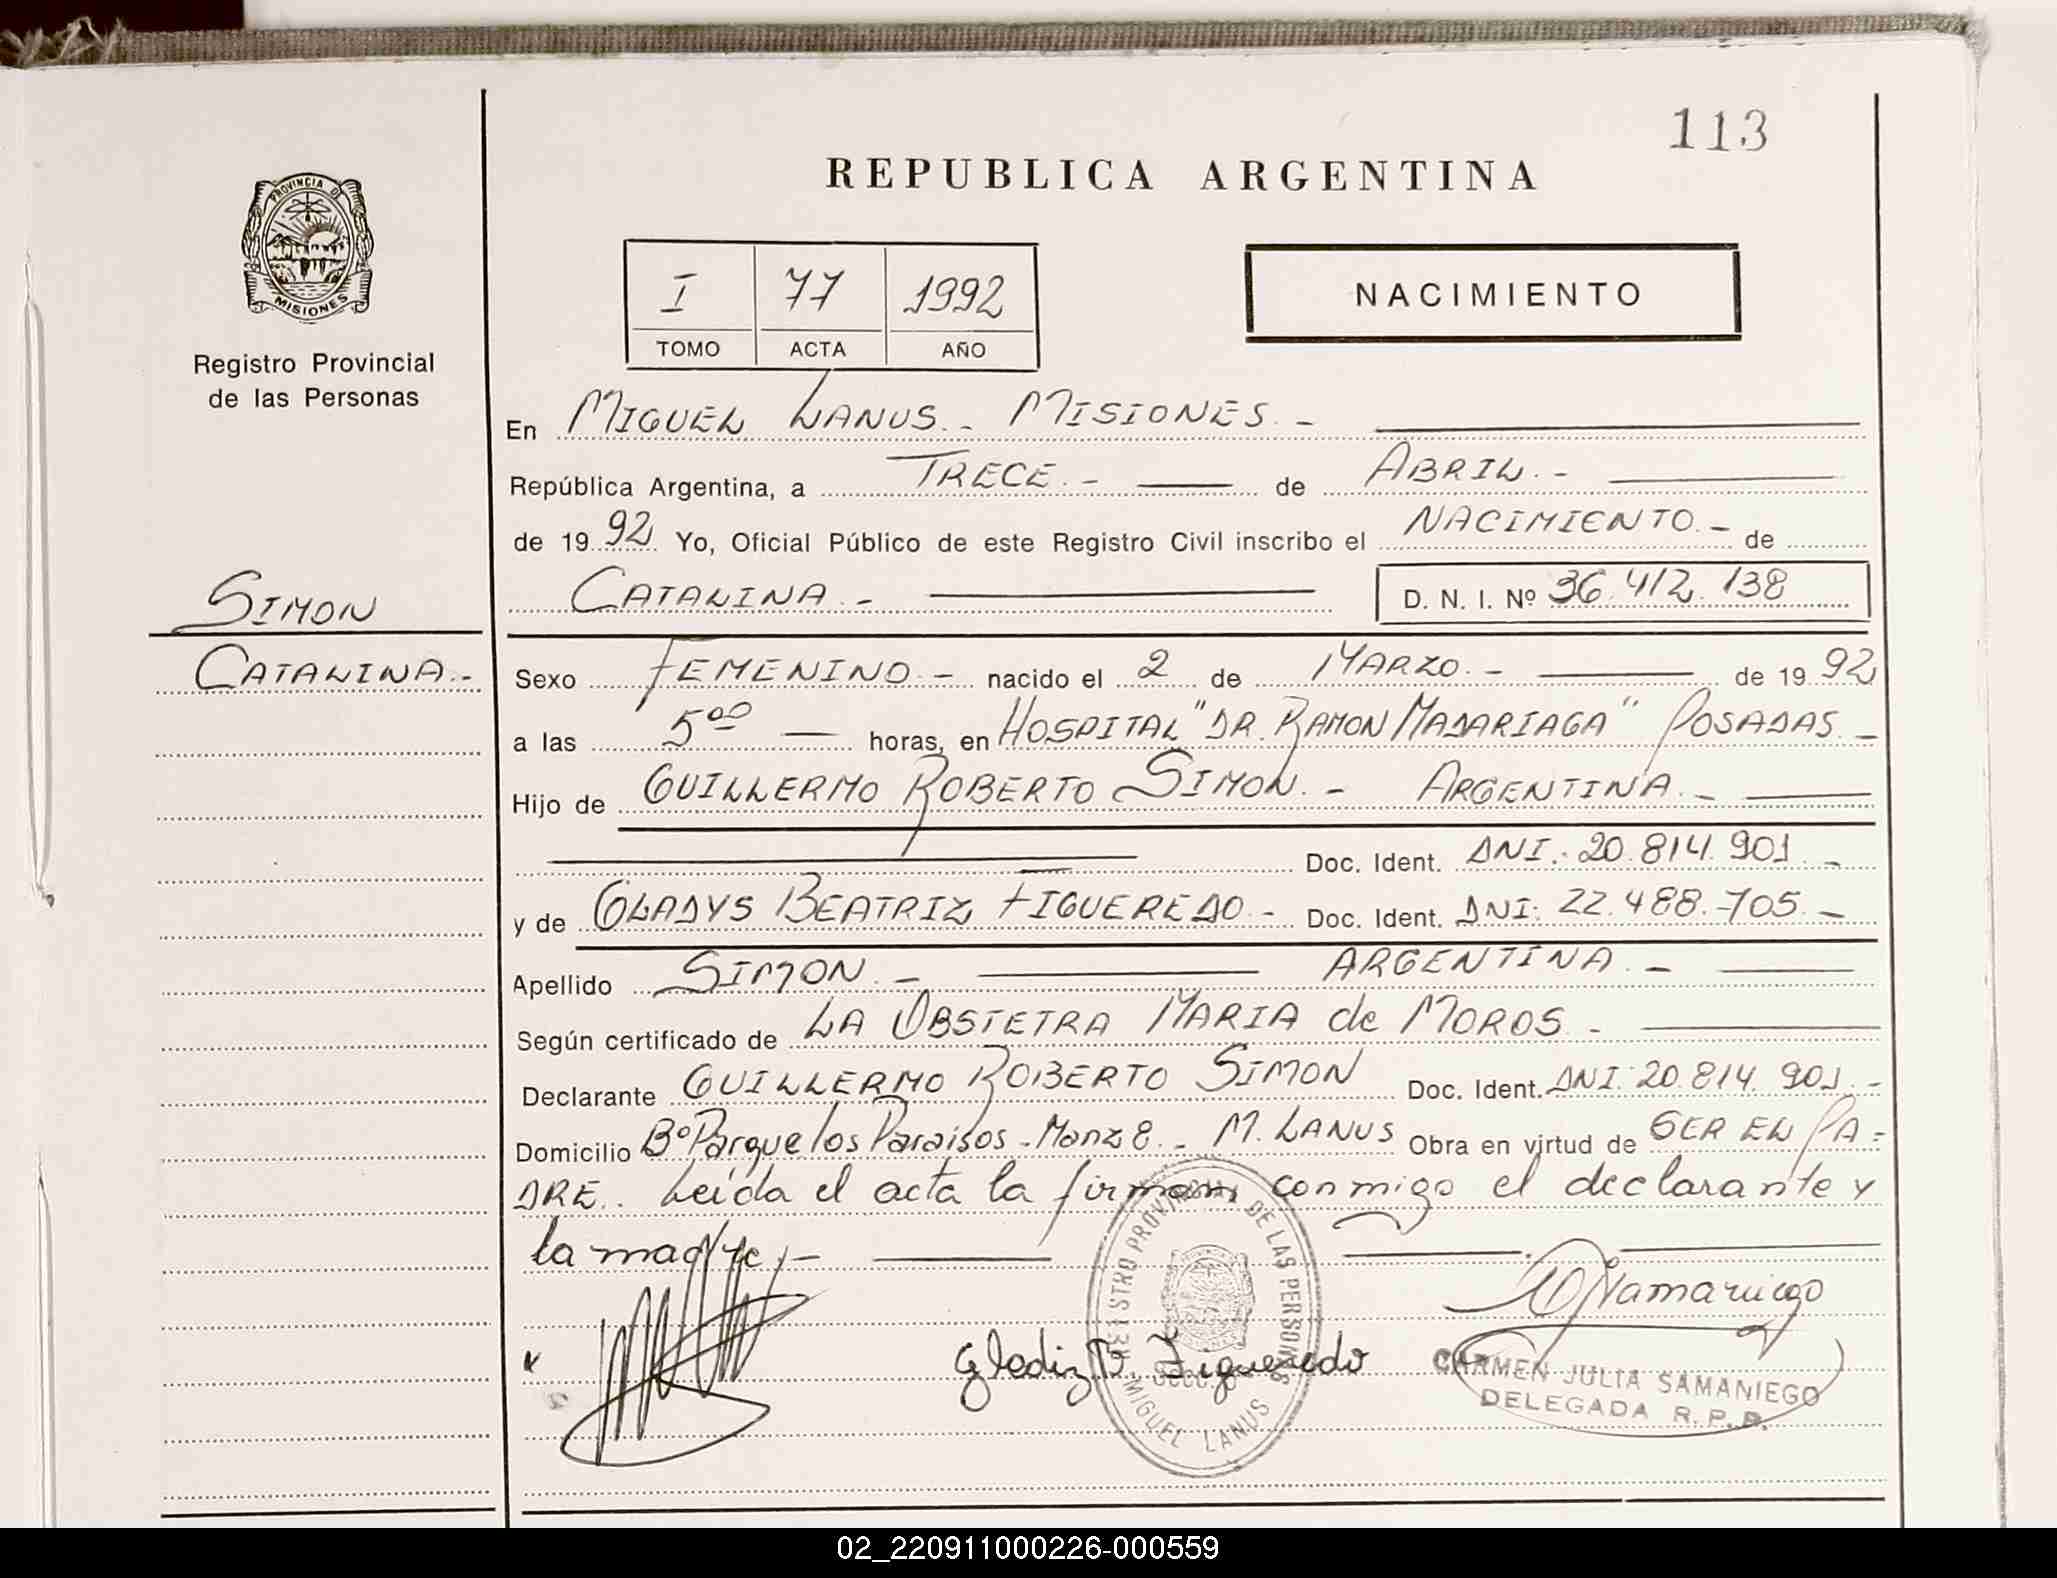 113
REPUBLICA ARGENTINA
PROVINCIA DE
MISIONES
Registro Provincial
de las Personas
I 77 1992
TOMO ACTA AÑO
NACIMIENTO
En MIGUEL LANUS - MISIONES. -
República Argentina, a TRECE. - de ABRIL. -
de 19 92 Yo, Oficial Público de este Registro Civil inscribo el NACIMIENTO. - de
CATALINA. - D. N. I. Nº 36.412.138
SIMON
CATALINA. -
Sexo FEMENINO - nacido el 2 de MARZO. - de 19 92
a las 5 00 — horas, en HOSPITAL "DR. RAMON MADARIAGA" POSADAS. -
Hijo de GUILLERMO ROBERTO SIMON. - ARGENTINA. -
Doc. Ident. DNI: 20.814.901 -
y de GLADYS BEATRIZ FIGUEREDO. - Doc. Ident. DNI: 22.488.705. -
Apellido SIMON. - ARGENTINA. -
Según certificado de LA OBSTETRA MARIA de MOROS. -
Declarante GUILLERMO ROBERTO SIMON Doc. Ident. DNI: 20.814.901. -
Domicilio Bº Parque los Paraisos - Manz 8. - M. LANUS Obra en virtud de SER EL PA=
DRE.. Leída el acta la firman, conmigo el declarante y
la madre, -
REGISTRO PROVINCIAL DE LAS PERSONAS
MIGUEL LANUS
Gladiz B. Figueredo
CARMEN JULIA SAMANIEGO
DELEGADA R. P. P.
02_220911000226-000559